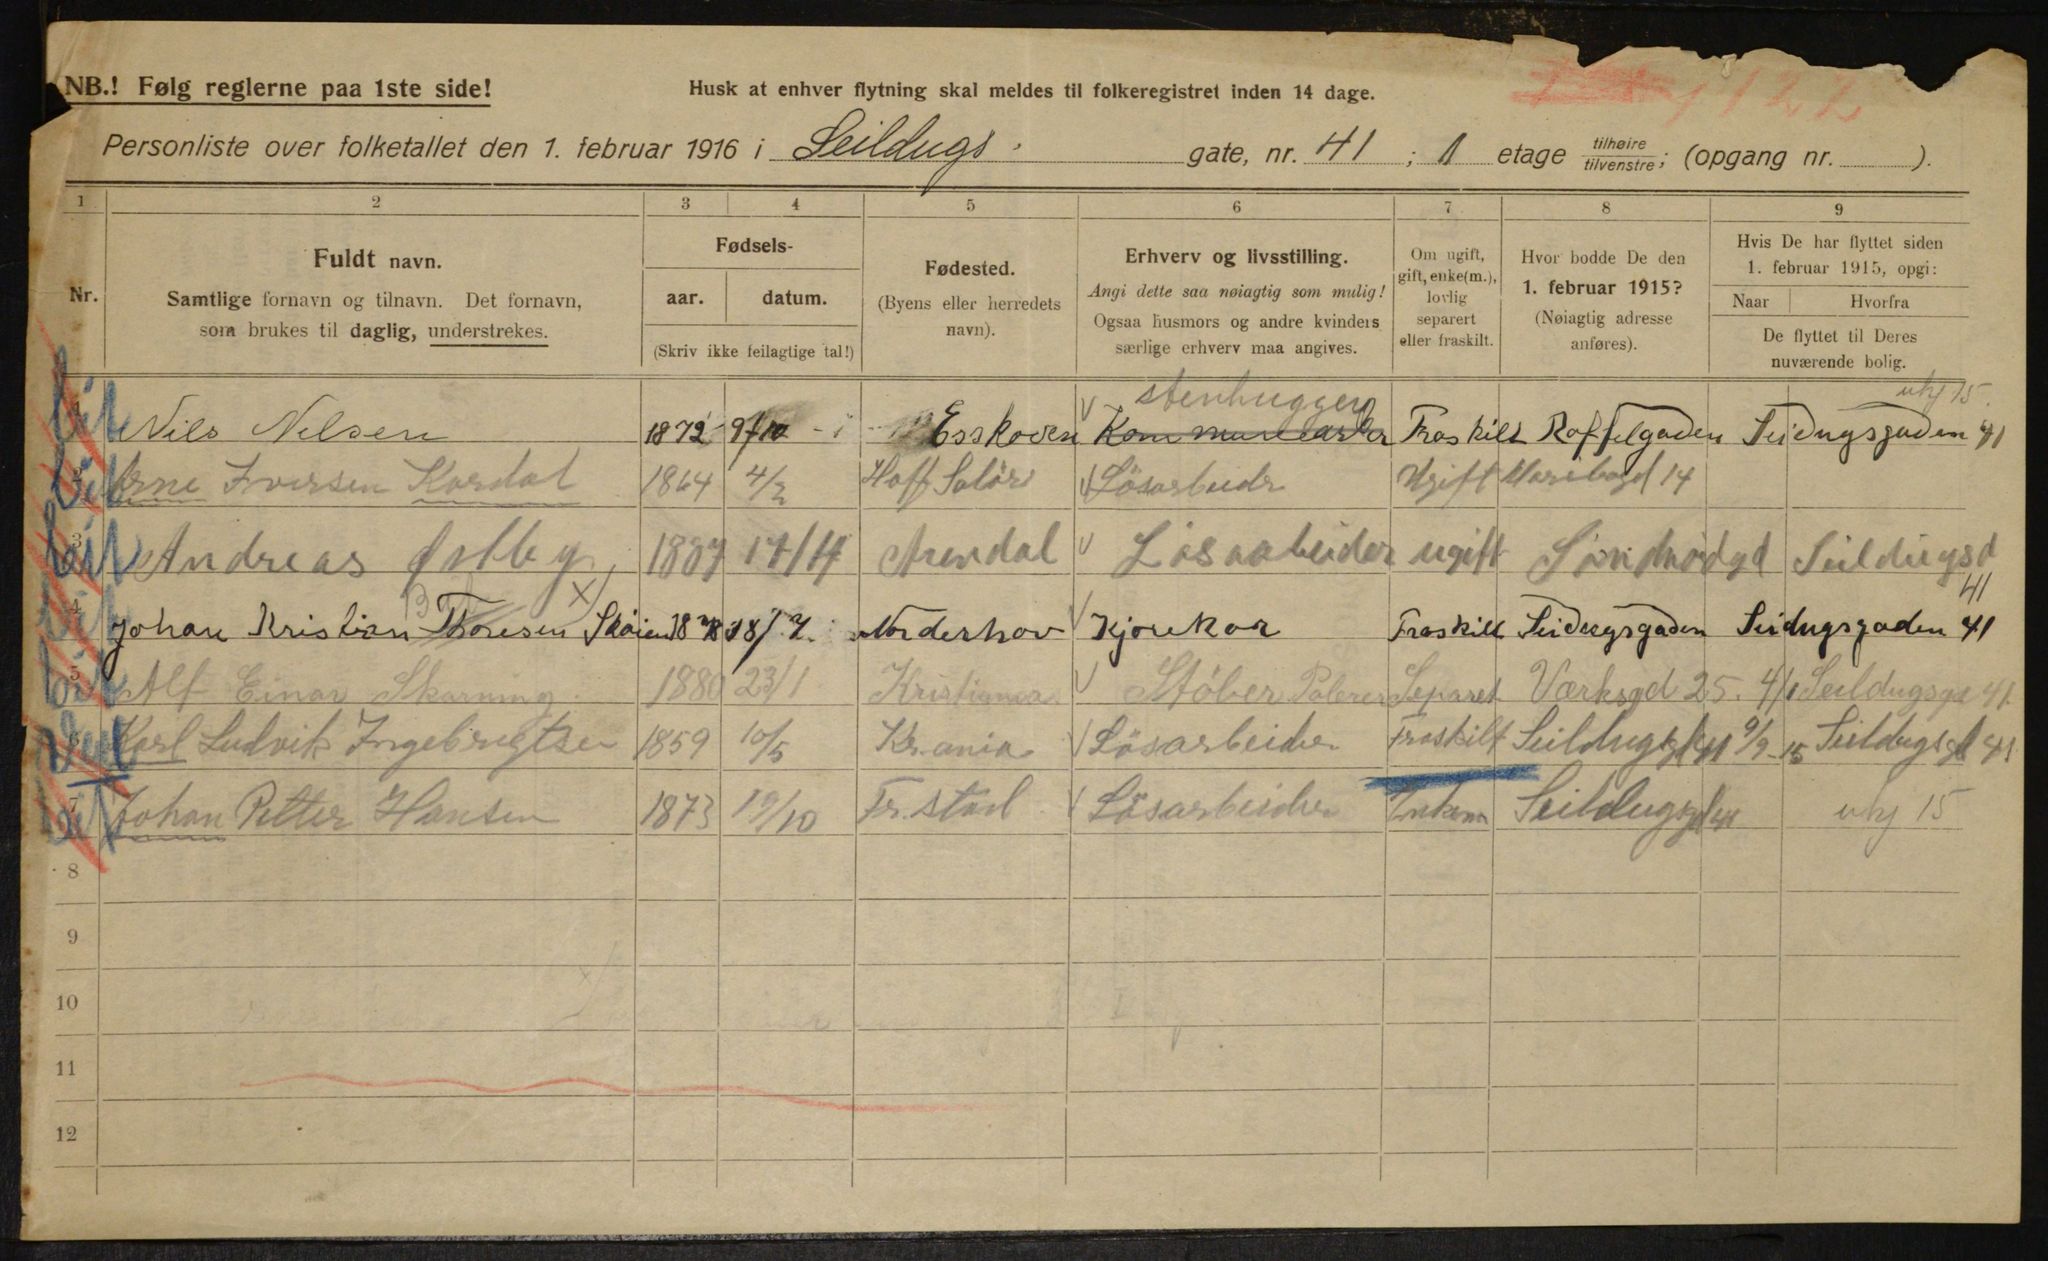 NB.! Følg reglerne paa 1ste side!
Husk at enhver flytning skal meldes til folkeregistret inden 14 dage.
1122
Personliste over folketallet den 1. februar 1916 i Seildugs gate, nr. 41; 1 etage tilhøire / tilvenstre; (opgang nr. ).
1 2 3 4 5 6 7 8 9
Nr.
Fuldt navn.
Samtlige fornavn og tilnavn. Det fornavn,
som brukes til daglig, understrekes.
Fødsels-
aar. datum.
(Skriv ikke feilagtige tal!)
Fødested.
(Byens eller herredets
navn).
Erhverv og livsstilling.
Angi dette saa nøiagtig som mulig!
Ogsaa husmors og andre kvinders
særlige erhverv maa angives.
Om ugift,
gift, enke(m.),
lovlig
separert
eller fraskilt.
Hvor bodde De den
1. februar 1915?
(Nøiagtig adresse
anføres).
Hvis De har flyttet siden
1. februar 1915, opgi:
Naar Hvorfra
De flyttet til Deres
nuværende bolig.
stenhugger uhj 15.
1 Nils Nilsen 1872 9/10 Esskoven Fraskilt Seidugsgaden 41
2 Arne Iversen Kordal 1864 4/2 Hoff Solör Lösarbeidr Ugift 14
3 Andreas Østby 1887 17/4 Arendal Løsarbeider ugift Seildugsd
41
4 Johan Kristian Thoresen Skoien x) 18/7 Norderhov Kjørekar Fraskilt Seidugsgaden Seidugsgaden 41
5 Alf Einar Skarning 1880 23/1 Kristiania Støber Separet Værksgd 25. Seildugsgd 41
6 Karl Ludvik Ingebrigtsen 1859 10/5 Kr.ania Lösarbeider Fraskilt Seildugsgd 41 9/9-15 Seildugsgd 41
7 Johan Petter Hansen 1873 19/10 Fr.stad Lösarbeider Enkem Seildugsgd 41 uhj 15
8
9
10
11
12